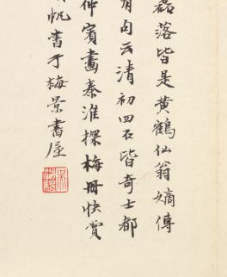 磊落皆是黄鶴仙翁嫡傳
有句云清初四石皆奇士都
仲賓畫秦淮探梅冊快賞
帆書于梅景書屋